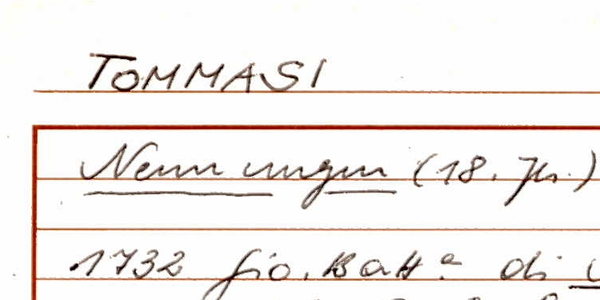 TOMMASI
Nennungen (18. Jh.)
1732 Gio. Batt.a di